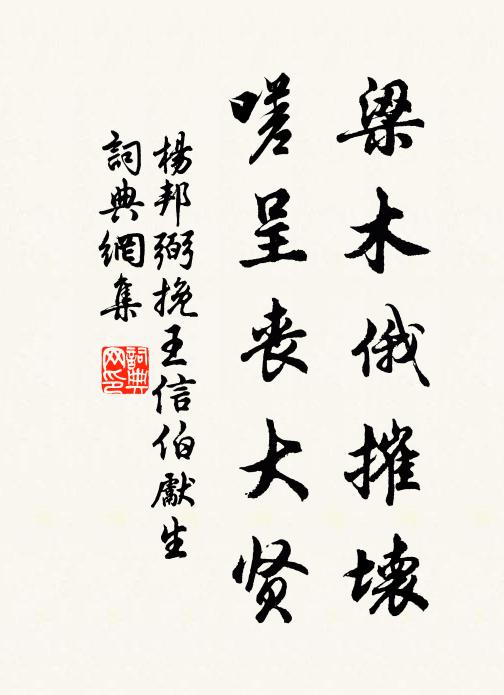 梁木俄摧壞
嗟呈丧大贤
楊邦弼挽王信伯獻生
詞典網集
詞典网印